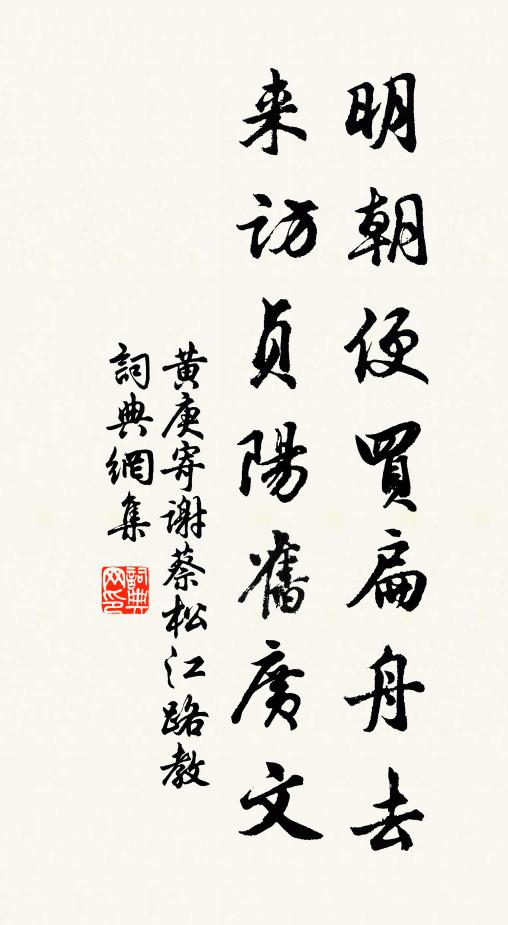 明朝便買扁舟去
来訪貞陽舊廣文
黄庚寄謝蔡松江路教
詞典網集
詞典網印